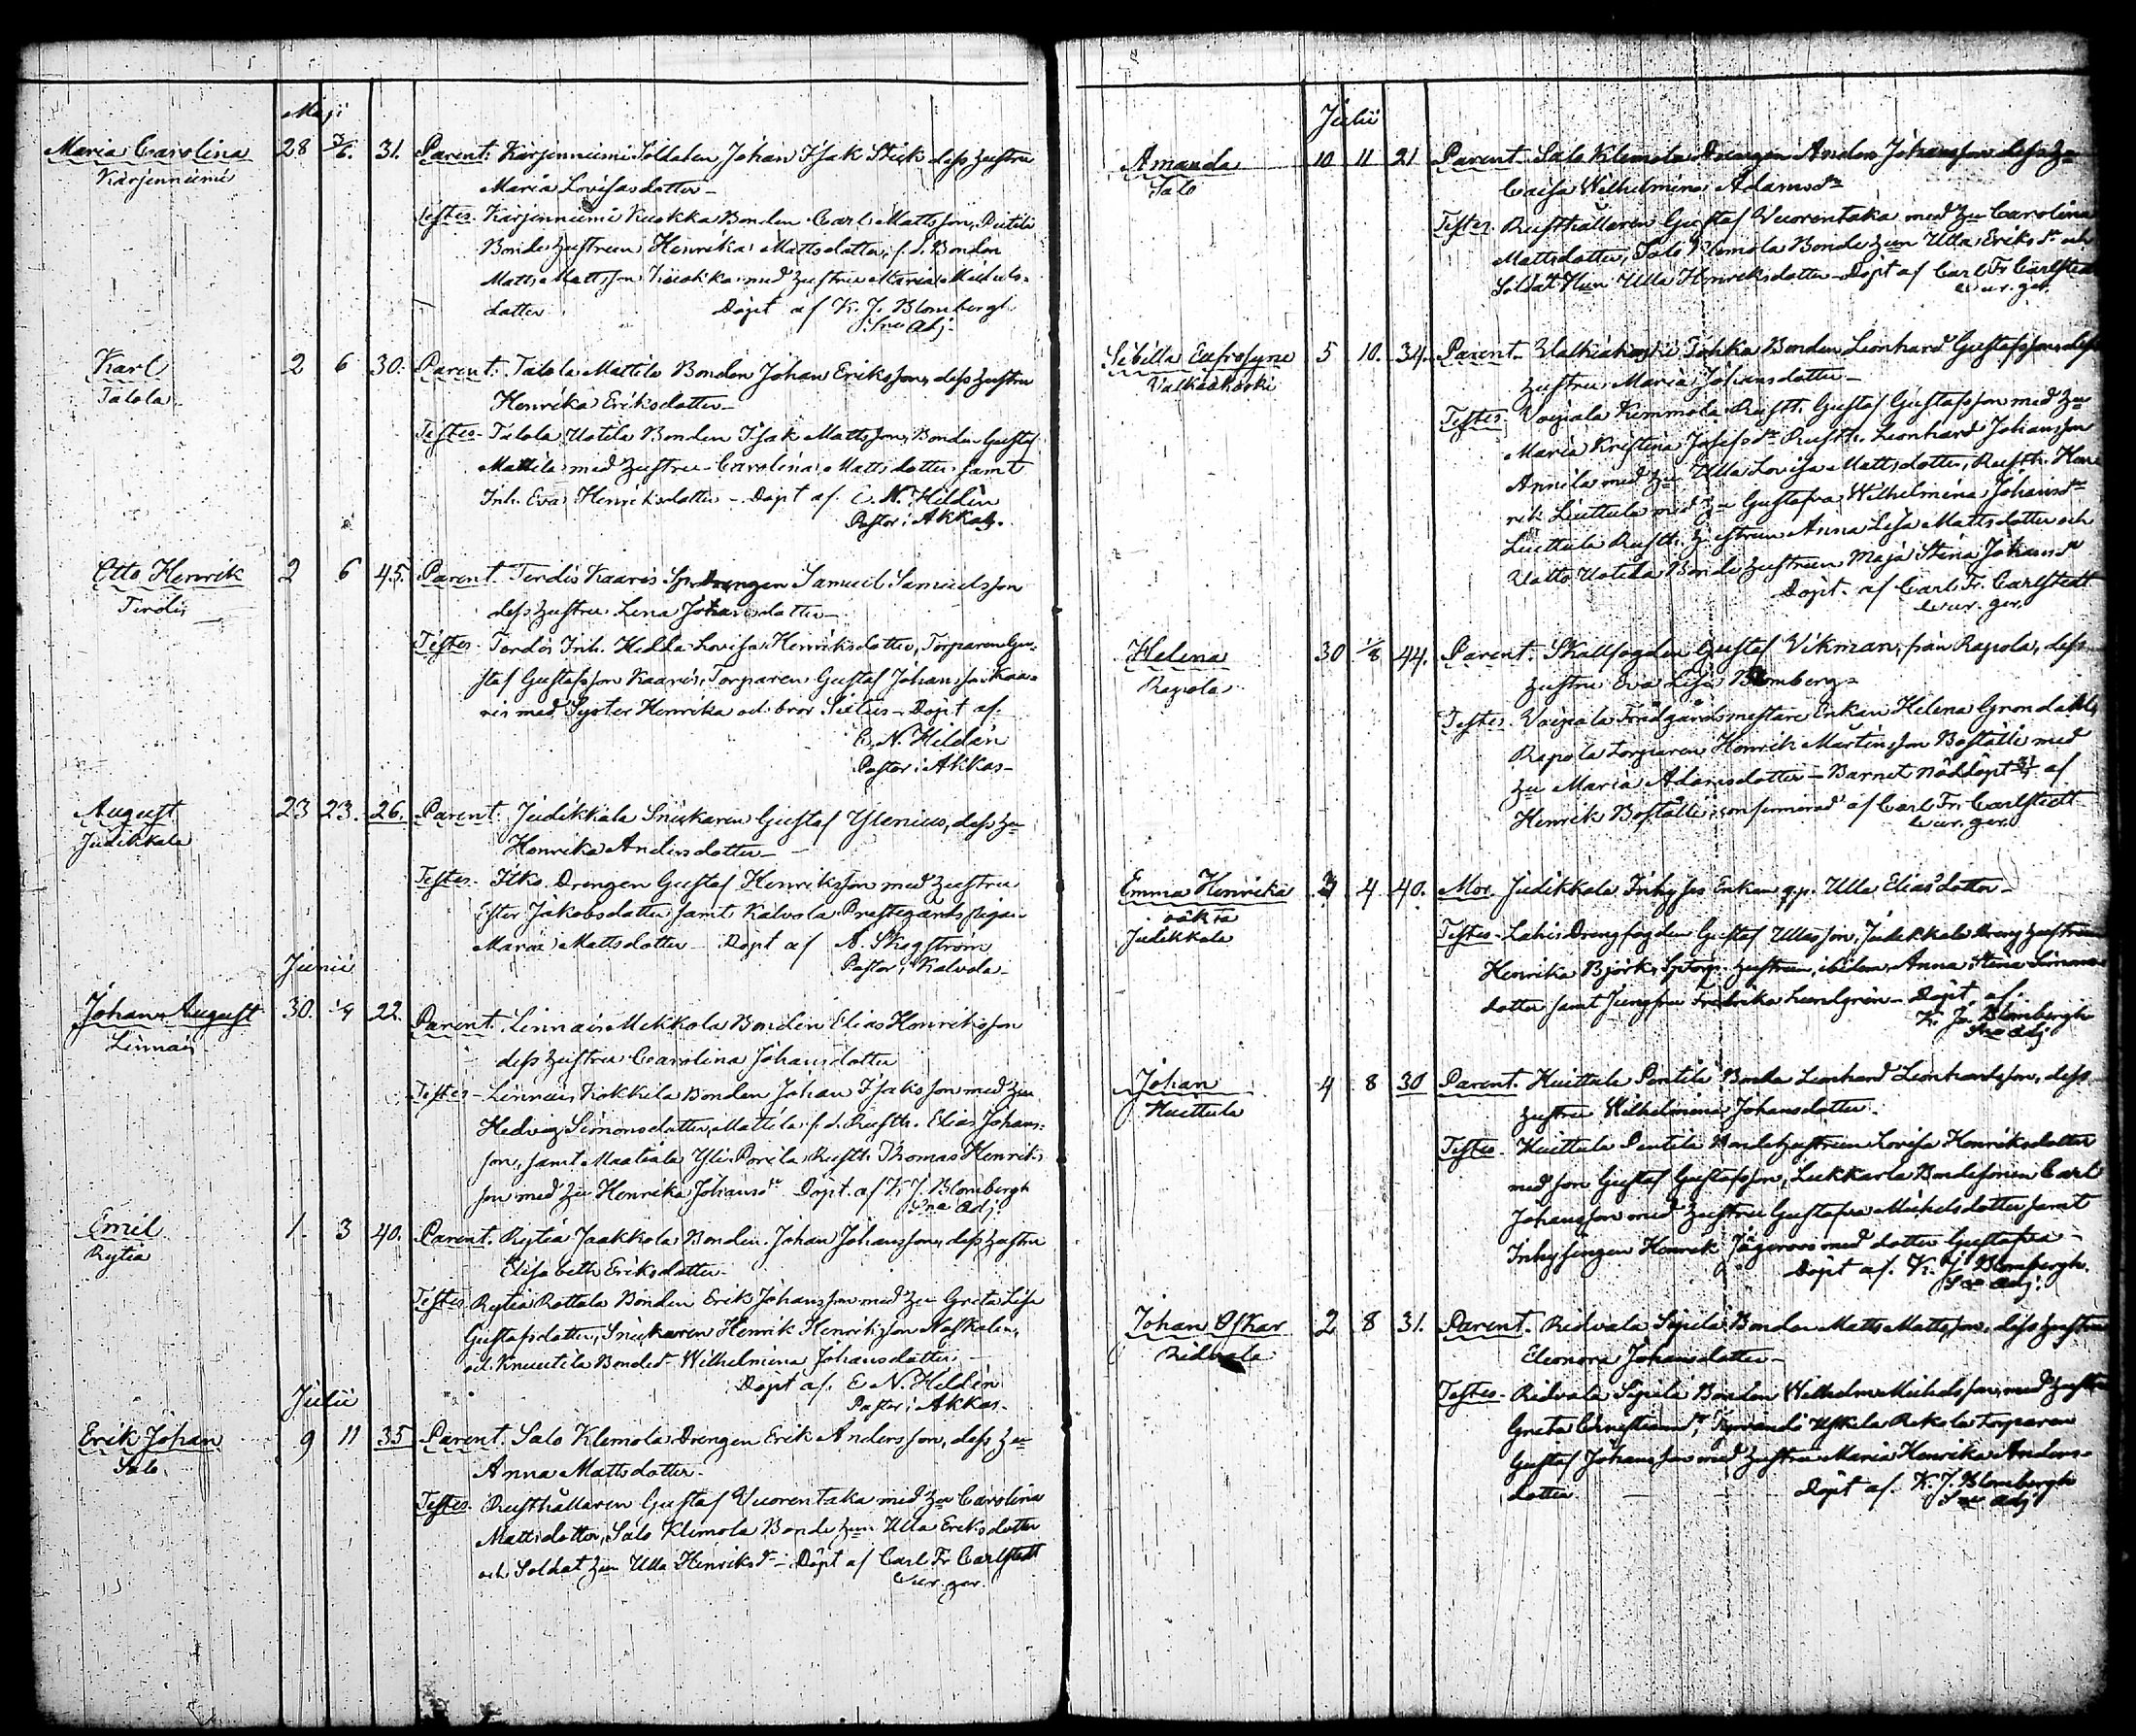 Maji
Maria Carolina 28 3/6. 31. Parent: Kärjenniemi Soldaten Johan Isak Stick dess hustru
Kärjenniemi Maria Lovisasdotter –
Testes. Kärjenniemi Kuokka Bonden Carl Mattsson, Pertilä
Bonde hustrun Henrika Mattsdotter, f.d. Bonden
Matts Mattsson Kuokka med hustru Maria Michels-
dotter Döpt af K. J. Blombergh
S:ne Adj.
Karl 2 6 30. Parent. Talola Mattila Bonden Johan Eriksson, dess hustru
Talola Henrika Eriksdotter –
Testes – Talola Uotila Bonden Isak Mattsson, Bonden Gustaf
Mattila med hustru Carolina Mattsdotter samt
Inh. Eva Henriksdotter – Döpt af E. N. Hildén
Pastor i Akkas.
Otto Henrik 2 6 45. Parent. Terdis Kaaris Spdrengen Samuel Samuelsson
Terdis dess hustru Lena Johansdotter –
Testes. Terdis Inh. Hedda Lovisa Henriksdotter, Torparen Gu-
staf Gustafsson Kaaris, Torparen Gustaf Johansson Kaa-
ris med Syster Henrika och bror Sixtus – Döpt af
E. N. Hildén
Pastor i Akkas –
August 23 23. 26. Parent. Judikkala Snickaren Gustaf Ylenius, dess hu
Judikkala Henrika Andersdotter –
Testes. Ilko Drengen Gustaf Henriksson med hustru
Ester Jakobsdotter samt Kalvola Prestegårds pigan
Maria Mattsdotter – Döpt af A. Skogström
Pastor i Kalvola –
Junii
Johan August 30. 1/4 22. Parent. Linnais Mekkola Bonden Elias Henriksson
Linnais dess hustru Carolina Johansdotter
Testes – Linnais Kokkila Bonden Johan Isaksson med hu
Hedvig Simonsdotter, Mattila f.d. Rusth. Elias Johans-
son, samt Maatiala Yli-Porila Rusth. Thomas Henriks-
son med hu Henrika Johansdr Döpt af K. J. Blombergh
S:ne Adj.
Emil 1. 3 40. Parent. Rytia Jaakkola Bonden Johan Johansson, dess hustru
Rytia Elisabeth Eriksdotter –
Testes Rytia Rottola Bonden Erik Johansson med hu Greta Lisa
Gustafsdotter, Snickaren Henrik Henriksson Naskalin,
och Knuutila Bonded. Wilhelmina Johansdotter
Döpt af E. N. Hildén
Pastor i Akkas –
Julii
Erik Johan 9 11 35 Parent. Salo Klemola Drengen Erik Andersson, dess hu
Salo. Anna Mattsdotter –
Testes. Rusthållaren Gustaf Vuorentaka med hu Carolina
Mattsdotter, Salo Klemola Bonde hun Ulla Eriksdotter
och Soldat hun Ulla Henriksdr – Döpt af Carl Fr Carlstedt
Cur. ger.
Julii
Amanda 10 11 21 Parent. Salo Klemola Drengen Anders Johansson dess hu
Salo Caisa Wilhelmina Adamsdr
Testes. Rusthållaren Gustaf Vuorentaka med hu Carolina
Mattsdotter, Salo Klemola Bonde hun Ulla Eriksdr och
Soldat Hun Ulla Henriksdotter – Döpt af Carl Fr Carlstedt
Cur. ger.
Sibilla Eufrosyne 5 10. 34. Parent. Walkiakoski Tohka Bonden Leonhard Gustafsson, dess
Valkiakoski hustru Maria Johansdotter –
Testes. Voipala Kemmola Rusth. Gustaf Gustafsson med hu
Maria Kristina Josefsdr Rusth. Leonhard Johansson
Annila med hu Ulla Lovisa Mattsdotter, Rusth. Hen-
rik Liuttula med hu Gustafva Wilhelmina Johansdr
Liuttula Rusth. hustrun Anna Lisa Mattsdotter och
Uotila Bonde hustrun Maja Stina Johansdr
Döpt af Carl Fr. Carlstedt
Cur. ger.
Helena 30 1/8 44. Parent. Skallfogden Gustaf Vikman, från Rapola, dess
Rapola hustru Eva Lisa Blomberg –
Testes. Voipala Trädgårdsmestare Enkan Helena Grondahl,
Rapola torparen Henrik Mårtensson Boställe med
hu Maria Adamsdotter – Barnet nöddöpt 31/7 af
Henrik Boställe, confirmerad af Carl Fr. Carlstedt
Cur. ger.
Emma Henrika 3 4 40. Mor. Judikkala Inhyses Enkan q.p. Ulla Eliasdotter –
oäkta
Judikkala Testes – Lahis Drengfogden Gustaf Ullasson, Judikkala dreng hustrun
Henrika Björk, Sptorp. hustrun, ibidem Anna Stina Simons
dotter samt Jungfru Fredrika Lundgrén – Döpt af
K. J. Blombergh
S:ne Adj
Johan 4 8 30 Parent. Huittula Pentilä Bonden Leonhard Leonhardsson, dess
Huittula hustru Wilhelmina Johansdotter.
Testes. Huittula Pentilä Bonde hustrun Lovisa Henriksdotter
med son Gustaf Gustafsson, Lukkarla Bondesonen Carl
Johansson med hustru Gustafva Michelsdotter samt
Inhysingen Henrik Jägerroos med dotter Gustafva –
Döpt af K. J. Blombergh.
S:ne Adj.
Johan Oskar 2 8 31. Parent. Ridvala Sipilä Bonden Matts Mattsson, dess hustru
Ridvala Eleonora Johansdotter –
Testes. Ridvala Sipilä Bonden Wilhelm Michelsson, med hustru
Greta Ernestina, Uskila Rekola torparen
Gustaf Johansson med hustru Maria Henrika Anders-
dotter – Döpt af K. J. Blombergh
S:ne Adj